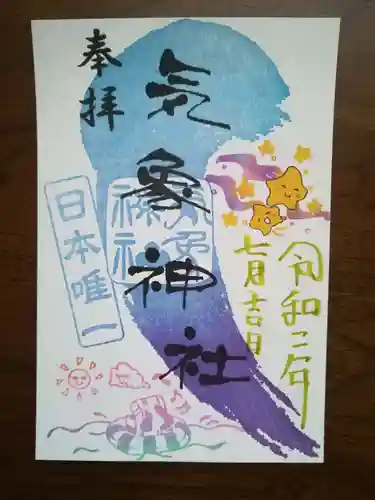 奉拝
気象神社
日本唯一
気象神社
令和二年
七月吉日